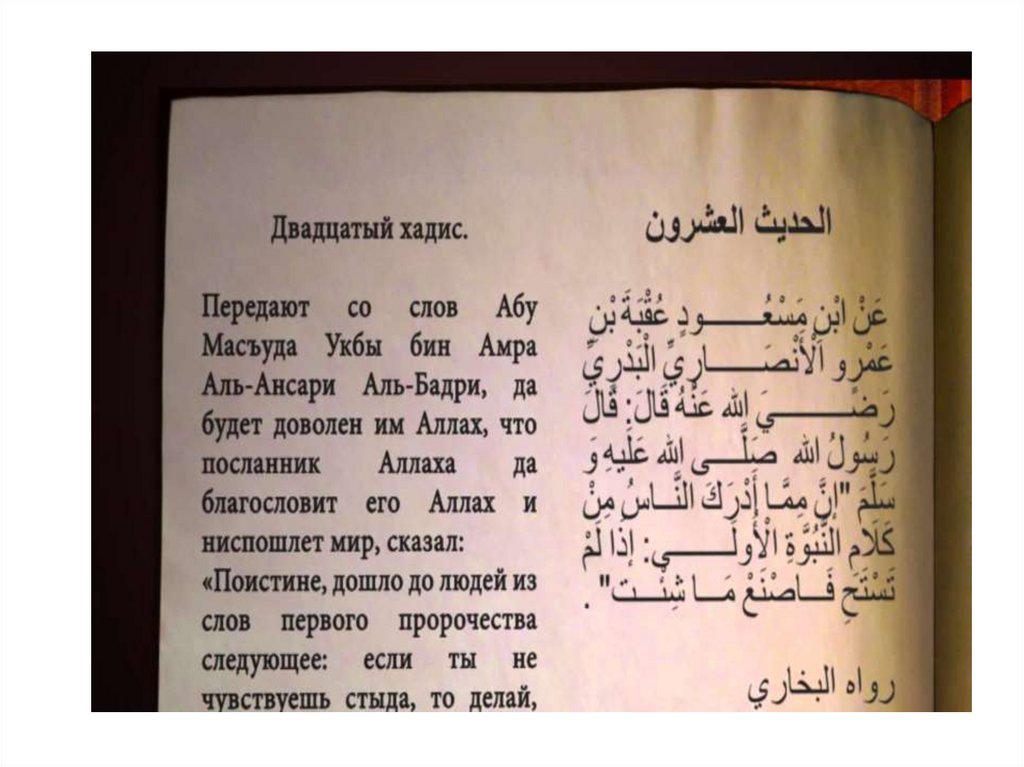 Двадцатый хадис.
Передают со слов Абу
Масъуда Укбы бин Амра
Аль-Ансари Аль-Бадри, да
будет доволен им Аллах, что
посланник Аллаха да
благословит его Аллах и
ниспошлет мир, сказал:
«Поистине, дошло до людей из
слов первого пророчества
следующее: если ты не
чувствуешь стыда, то делай,
الحديث العشرون
عَنْ ابْنِ مَسْعُـــــودٍ عُقْبَةَ بْنِ
عَمْرٍو اَلْأَنْصَـــــارِيِّ الْبَدْرِيِّ
رَضـــــِيَ الله عَنْهُ قَالَ: قَالَ
رَسُولُ الله صَلَّـــى الله عَلَيهِ وَ
سَلَّمَ "إنَّ مِمَّـا أَدْرَكَ النَّـاسُ مِنْ
كَلَامِ النُّبُوَّةِ الْأُولَـــــى: إذَا لَمْ
تَسْتَحِ فَـاصْنَعْ مَـا شِئْـت" .
رواه البخاري